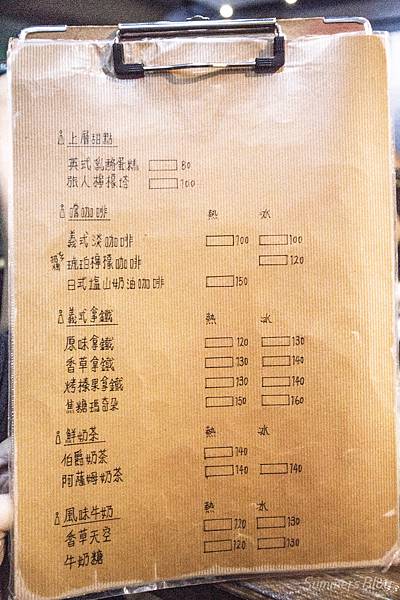 上層甜點
英式乳酪蛋糕 80
旅人檸檬塔 100
喝咖啡 熱 冰
義式淡咖啡 100 100
琥珀檸檬咖啡 120
日式塩山奶油咖啡 150
義式拿鐵 熱 冰
原味拿鐵 120 130
香草拿鐵 130 140
烤榛果拿鐵 130 140
焦糖瑪奇朵 150 160
鮮奶茶 熱 冰
伯爵奶茶 140
阿薩姆奶茶 140 140
風味牛奶 熱 冰
香草天空 120 130
牛奶糖 120 130
Summer's Blog